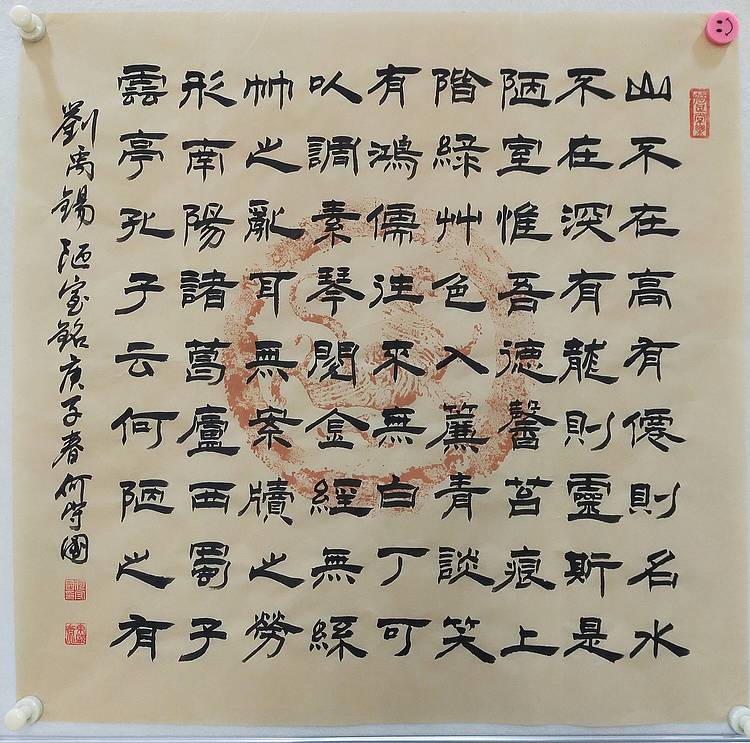 山不在高有僊則名水
不在深有龍則靈斯是
陋室惟吾德馨苔痕上
階綠艸色入簾青談笑
有鴻儒往來無白丁可
以調素琴閱金經無絲
竹之亂耳無案牘之勞
形南陽諸葛廬西蜀子
雲亭孔子云何陋之有
劉禹錫陋室銘庚子春何守國